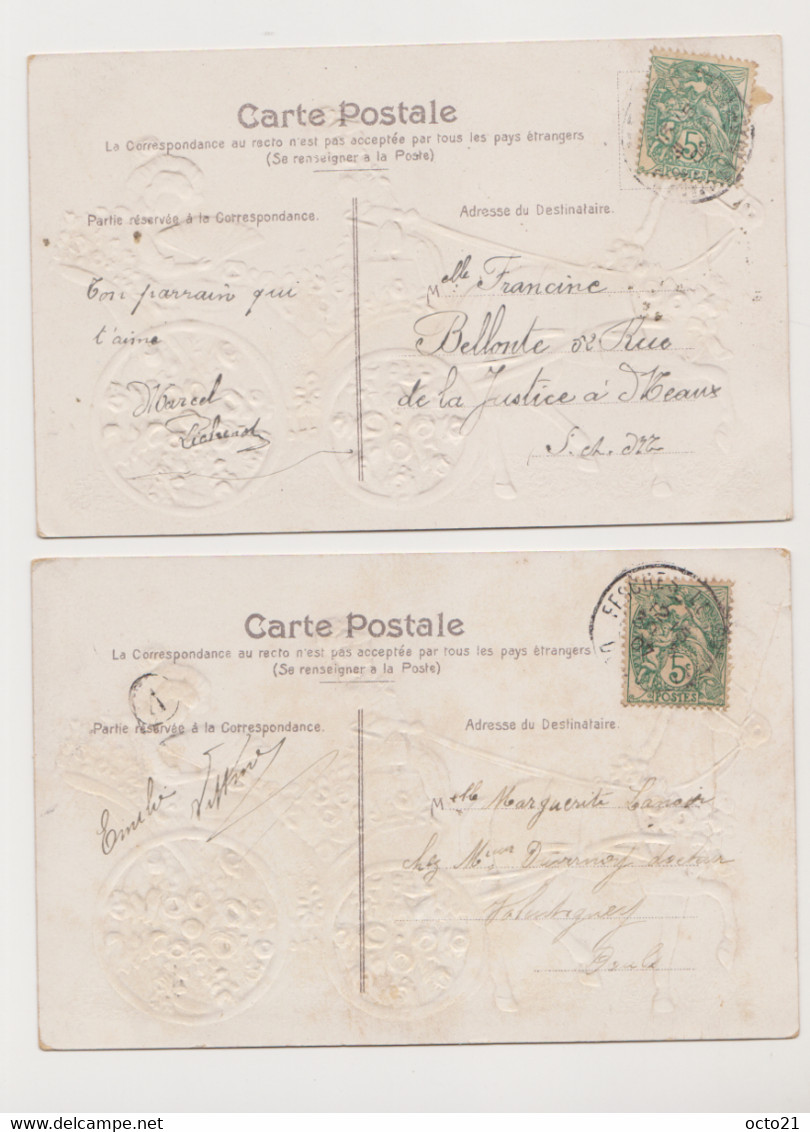 Carte Postale
La Correspondance au recto n'est pas acceptée par tous les pays étrangers
(Se renseigner a la Poste)
Partie réservée à la Correspondance.
Adresse du Destinataire.
5c
POSTES
Ton parrain qui
t'aime
Marcel
Melle Francine
Bellonte 52 Rue
de la Justice à Meaux
S. et. M
Carte Postale
La Correspondance au recto n'est pas acceptée par tous les pays étrangers
(Se renseigner a la Poste)
Partie réservée à la Correspondance.
Adresse du Destinataire.
FESCHES
5c
POSTES
1
Emilie
Melle Marguerite
chez Mme Duvernoy docteur
Doubs
octo21